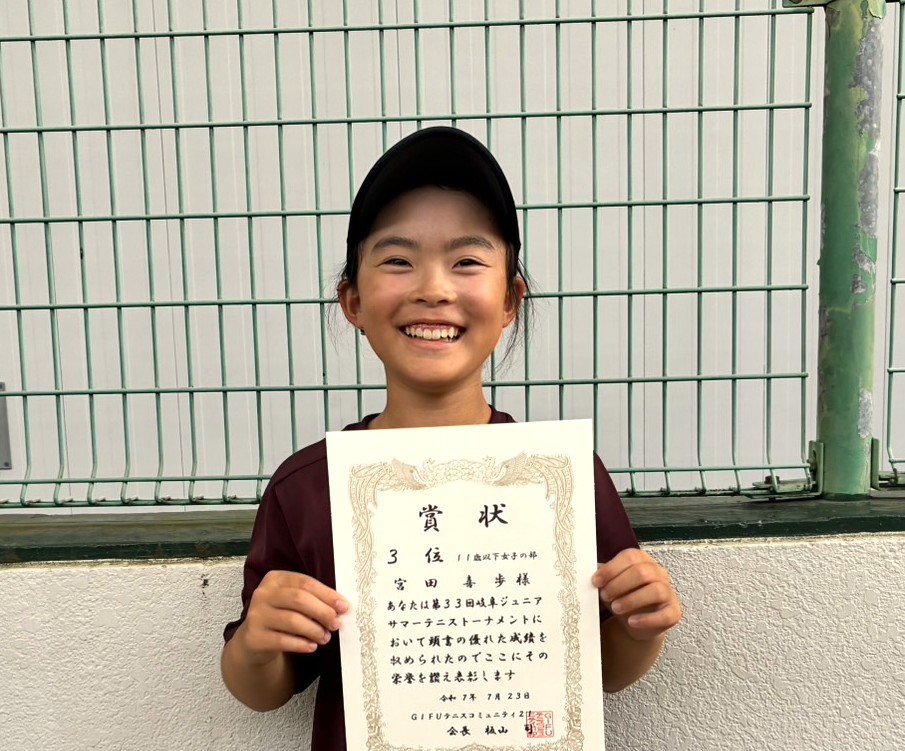 賞 状
3 位 11歳以下女子の部
宮 田 喜 歩 様
あなたは第33回岐阜ジュニア
サマーテニストーナメントに
おいて頭書の優れた成績を
収められたのでここにその
栄誉を讃え表彰します
令和 7年 7月 23日
GIFUテニスコミュニティ21
会長 板山 司